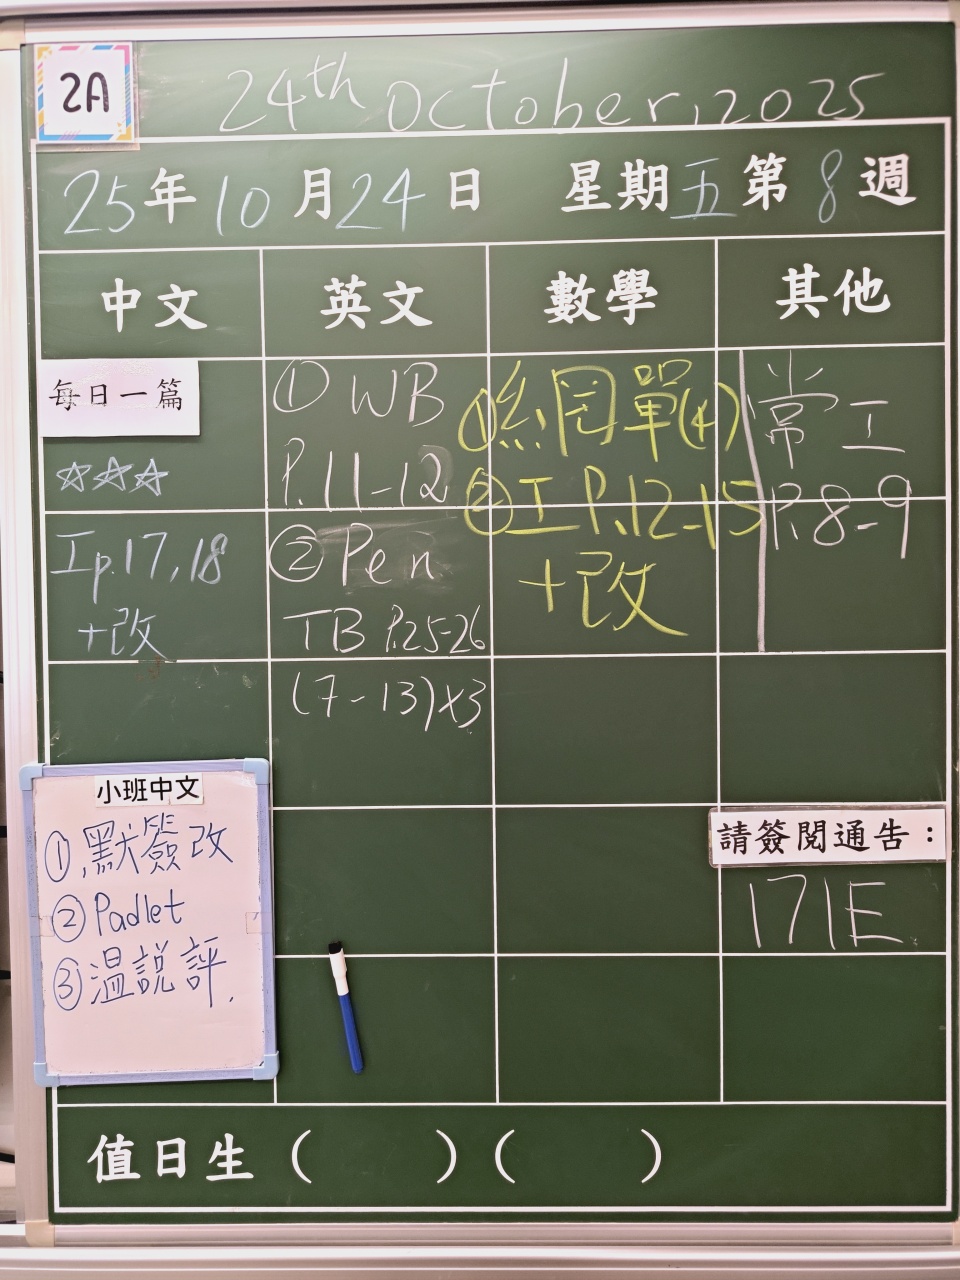 2A
24th October, 2025
25年10月24日 星期五第8週
中文 英文 數學 其他
每日一篇
☆☆☆
工p.17,18
+改
① WB
P.11-12
② Pen
TB P.25-26
(7-13)x3
①
單(4)
②工 P.12-15
+改
常工
P.8-9
小班中文
①默簽改
②Padlet
③溫說評.
請簽閱通告：
171E
值日生 ( ) ( )